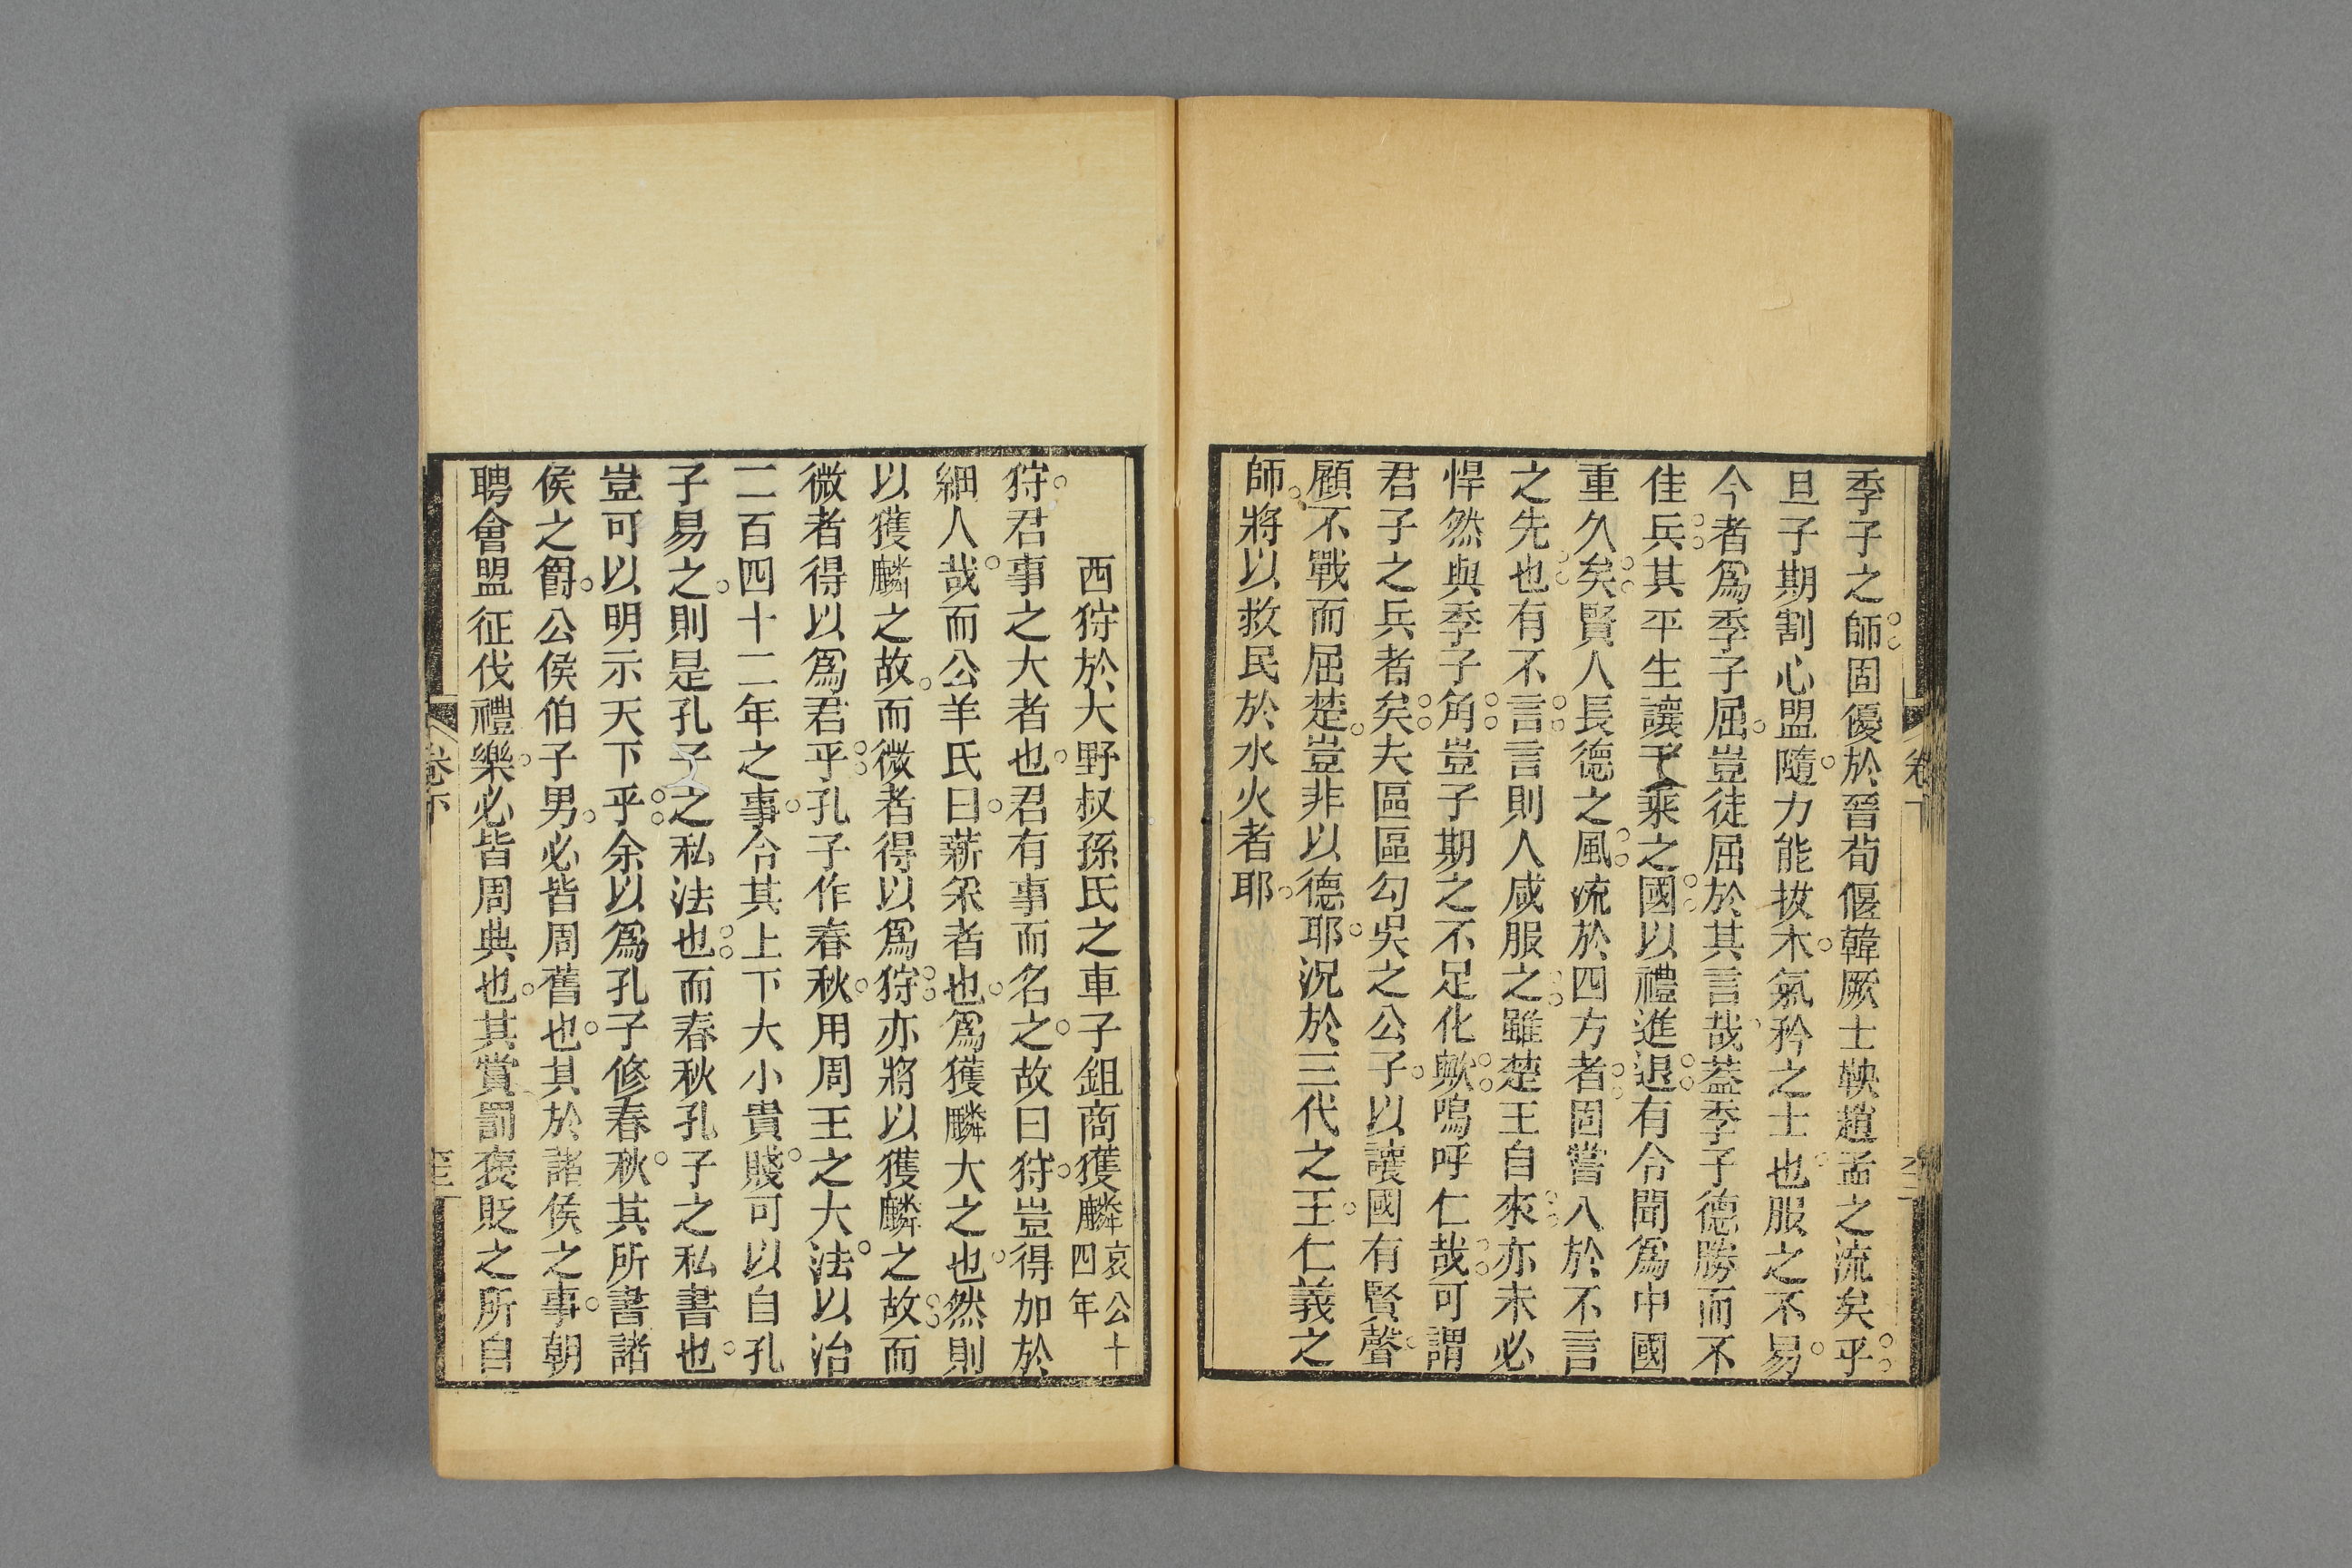 季子之師固優於晉荀偃韓厥士鞅趙孟之流矣乎
且子期割心盟隨力能拔木氣矜之士也服之不易
今者爲季子屈豈徒屈於其言哉葢季子德勝而不
佳兵其平生讓千乘之國以禮進退有令聞爲中國
重久矣賢人長德之風流於四方者固嘗入於不言
之先也有不言言則人咸服之雖楚王自來亦未必
悍然與季子角豈子期之不足化歟嗚呼仁哉可謂
君子之兵者矣夫區區勾吳之公子以讓國有賢聲
顧不戰而屈楚豈非以德耶況於三代之王仁義之
師將以救民於水火者耶
卷下
西狩於大野叔孫氏之車子鉏商獲麟哀公十四年
狩君事之大者也君有事而名之故曰狩豈得加於
細人哉而公羊氏曰薪采者也爲獲麟大之也然則
以獲麟之故而微者得以爲狩亦將以獲麟之故而
微者得以爲君乎孔子作春秋用周王之大法以治
二百四十二年之事合其上下大小貴賤可以自孔
子易之則是孔子之私法也而春秋孔子之私書也
豈可以明示天下乎余以爲孔子修春秋其所書諸
侯之爵公侯伯子男必皆周舊也其於諸侯之事朝
聘會盟征伐禮樂必皆周典也其賞罰褒貶之所自
卷下